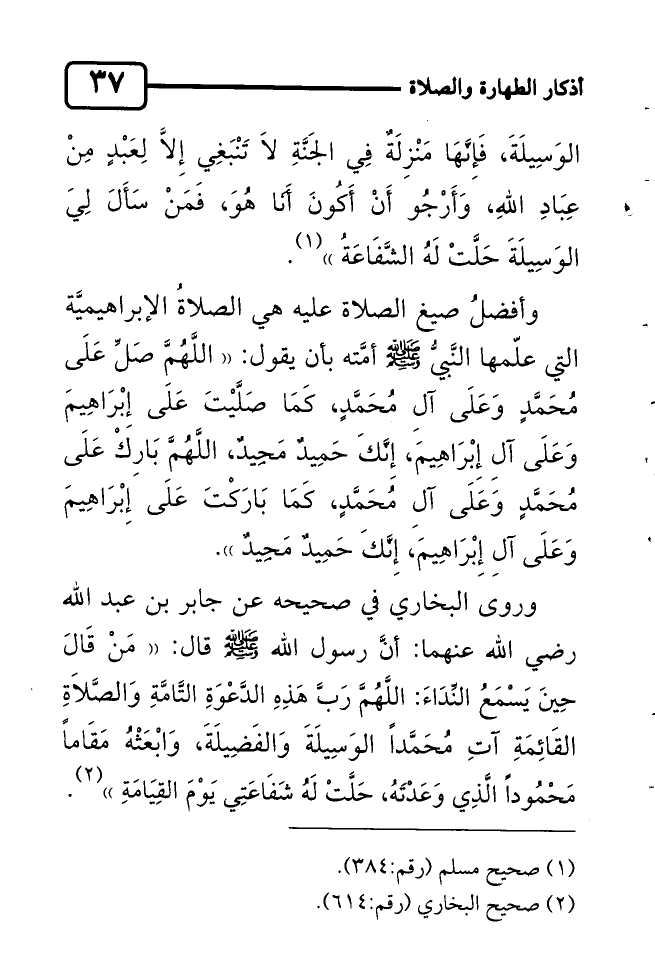 أذكار الطهارة والصلاة ٣٧
الوَسِيلَةَ، فَإِنَّهَا مَنْزِلَةٌ فِي الجَنَّةِ لاَ تَنْبَغِي إِلاَّ لِعَبْدٍ مِنْ
عِبَادِ اللهِ، وَأَرْجُو أَنْ أَكُونَ أَنَا هُوَ، فَمَنْ سَأَلَ لِيَ
الوَسِيلَةَ حَلَّتْ لَهُ الشَّفَاعَةُ »(١).
وأفضلُ صيغ الصلاة عليه هي الصلاةُ الإبراهيميَّة
التي علّمها النَّبيُّ ﷺ أمَّته بأن يقول: « اللَّهُمَّ صَلِّ عَلَى
مُحَمَّدٍ وَعَلَى آلِ مُحَمَّدٍ، كَمَا صَلَّيْتَ عَلَى إِبْرَاهِيمَ
وَعَلَى آلِ إِبْرَاهِيمَ، إِنَّكَ حَمِيدٌ مَجِيدٌ، اللَّهُمَّ بَارِكْ عَلَى
مُحَمَّدٍ وَعَلَى آلِ مُحَمَّدٍ، كَمَا بَارَكْتَ عَلَى إِبْرَاهِيمَ
وَعَلَى آلِ إِبْرَاهِيمَ، إِنَّكَ حَمِيدٌ مَجِيدٌ ».
وروى البخاري في صحيحه عن جابر بن عبد الله
رضي الله عنهما: أنَّ رسول الله ﷺ قال: « مَنْ قَالَ
حِينَ يَسْمَعُ النِّدَاءَ: اللَّهُمَّ رَبَّ هَذِهِ الدَّعْوَةِ التَّامَّةِ وَالصَّلاَةِ
القَائِمَةِ آتِ مُحَمَّداً الوَسِيلَةَ وَالفَضِيلَةَ، وَابْعَثْهُ مَقَاماً
مَحْمُوداً الَّذِي وَعَدْتَهُ، حَلَّتْ لَهُ شَفَاعَتِي يَوْمَ القِيَامَةِ »(٢).
(١) صحيح مسلم (رقم:٣٨٤).
(٢) صحيح البخاري (رقم:٦١٤).